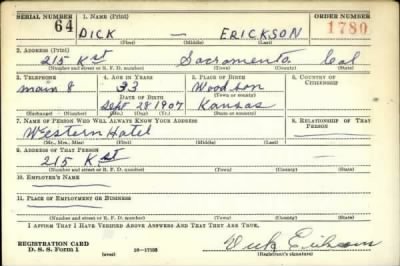 SERIAL NUMBER 1. NAME (Print) ORDER NUMBER
64 DICK — ERICKSON 1780
(First) (Middle) (Last)
2. ADDRESS (Print)
215 K st Sacramento Cal
(Number and street or R. F. D. number) (Town) (County) (State)
3. TELEPHONE 4. AGE IN YEARS 5. PLACE OF BIRTH 6. COUNTRY OF CITIZENSHIP
main 8 33 Woodson
DATE OF BIRTH (Town or county)
Sept 28 1907 Kansas
(Exchange) (Number) (Mo.) (Day) (Yr.) (State or country)
7. NAME OF PERSON WHO WILL ALWAYS KNOW YOUR ADDRESS 8. RELATIONSHIP OF THAT PERSON
Western Hotel
(Mr., Mrs., Miss) (First) (Middle) (Last)
9. ADDRESS OF THAT PERSON
215 K st
(Number and street or R. F. D. number) (Town) (County) (State)
10. EMPLOYER'S NAME
11. PLACE OF EMPLOYMENT OR BUSINESS
(Number and street or R. F. D. number) (Town) (County) (State)
I AFFIRM THAT I HAVE VERIFIED ABOVE ANSWERS AND THAT THEY ARE TRUE.
REGISTRATION CARD
D. S. S. Form 1 (over) 16—17105 (Registrant's signature)
Dick Erickson